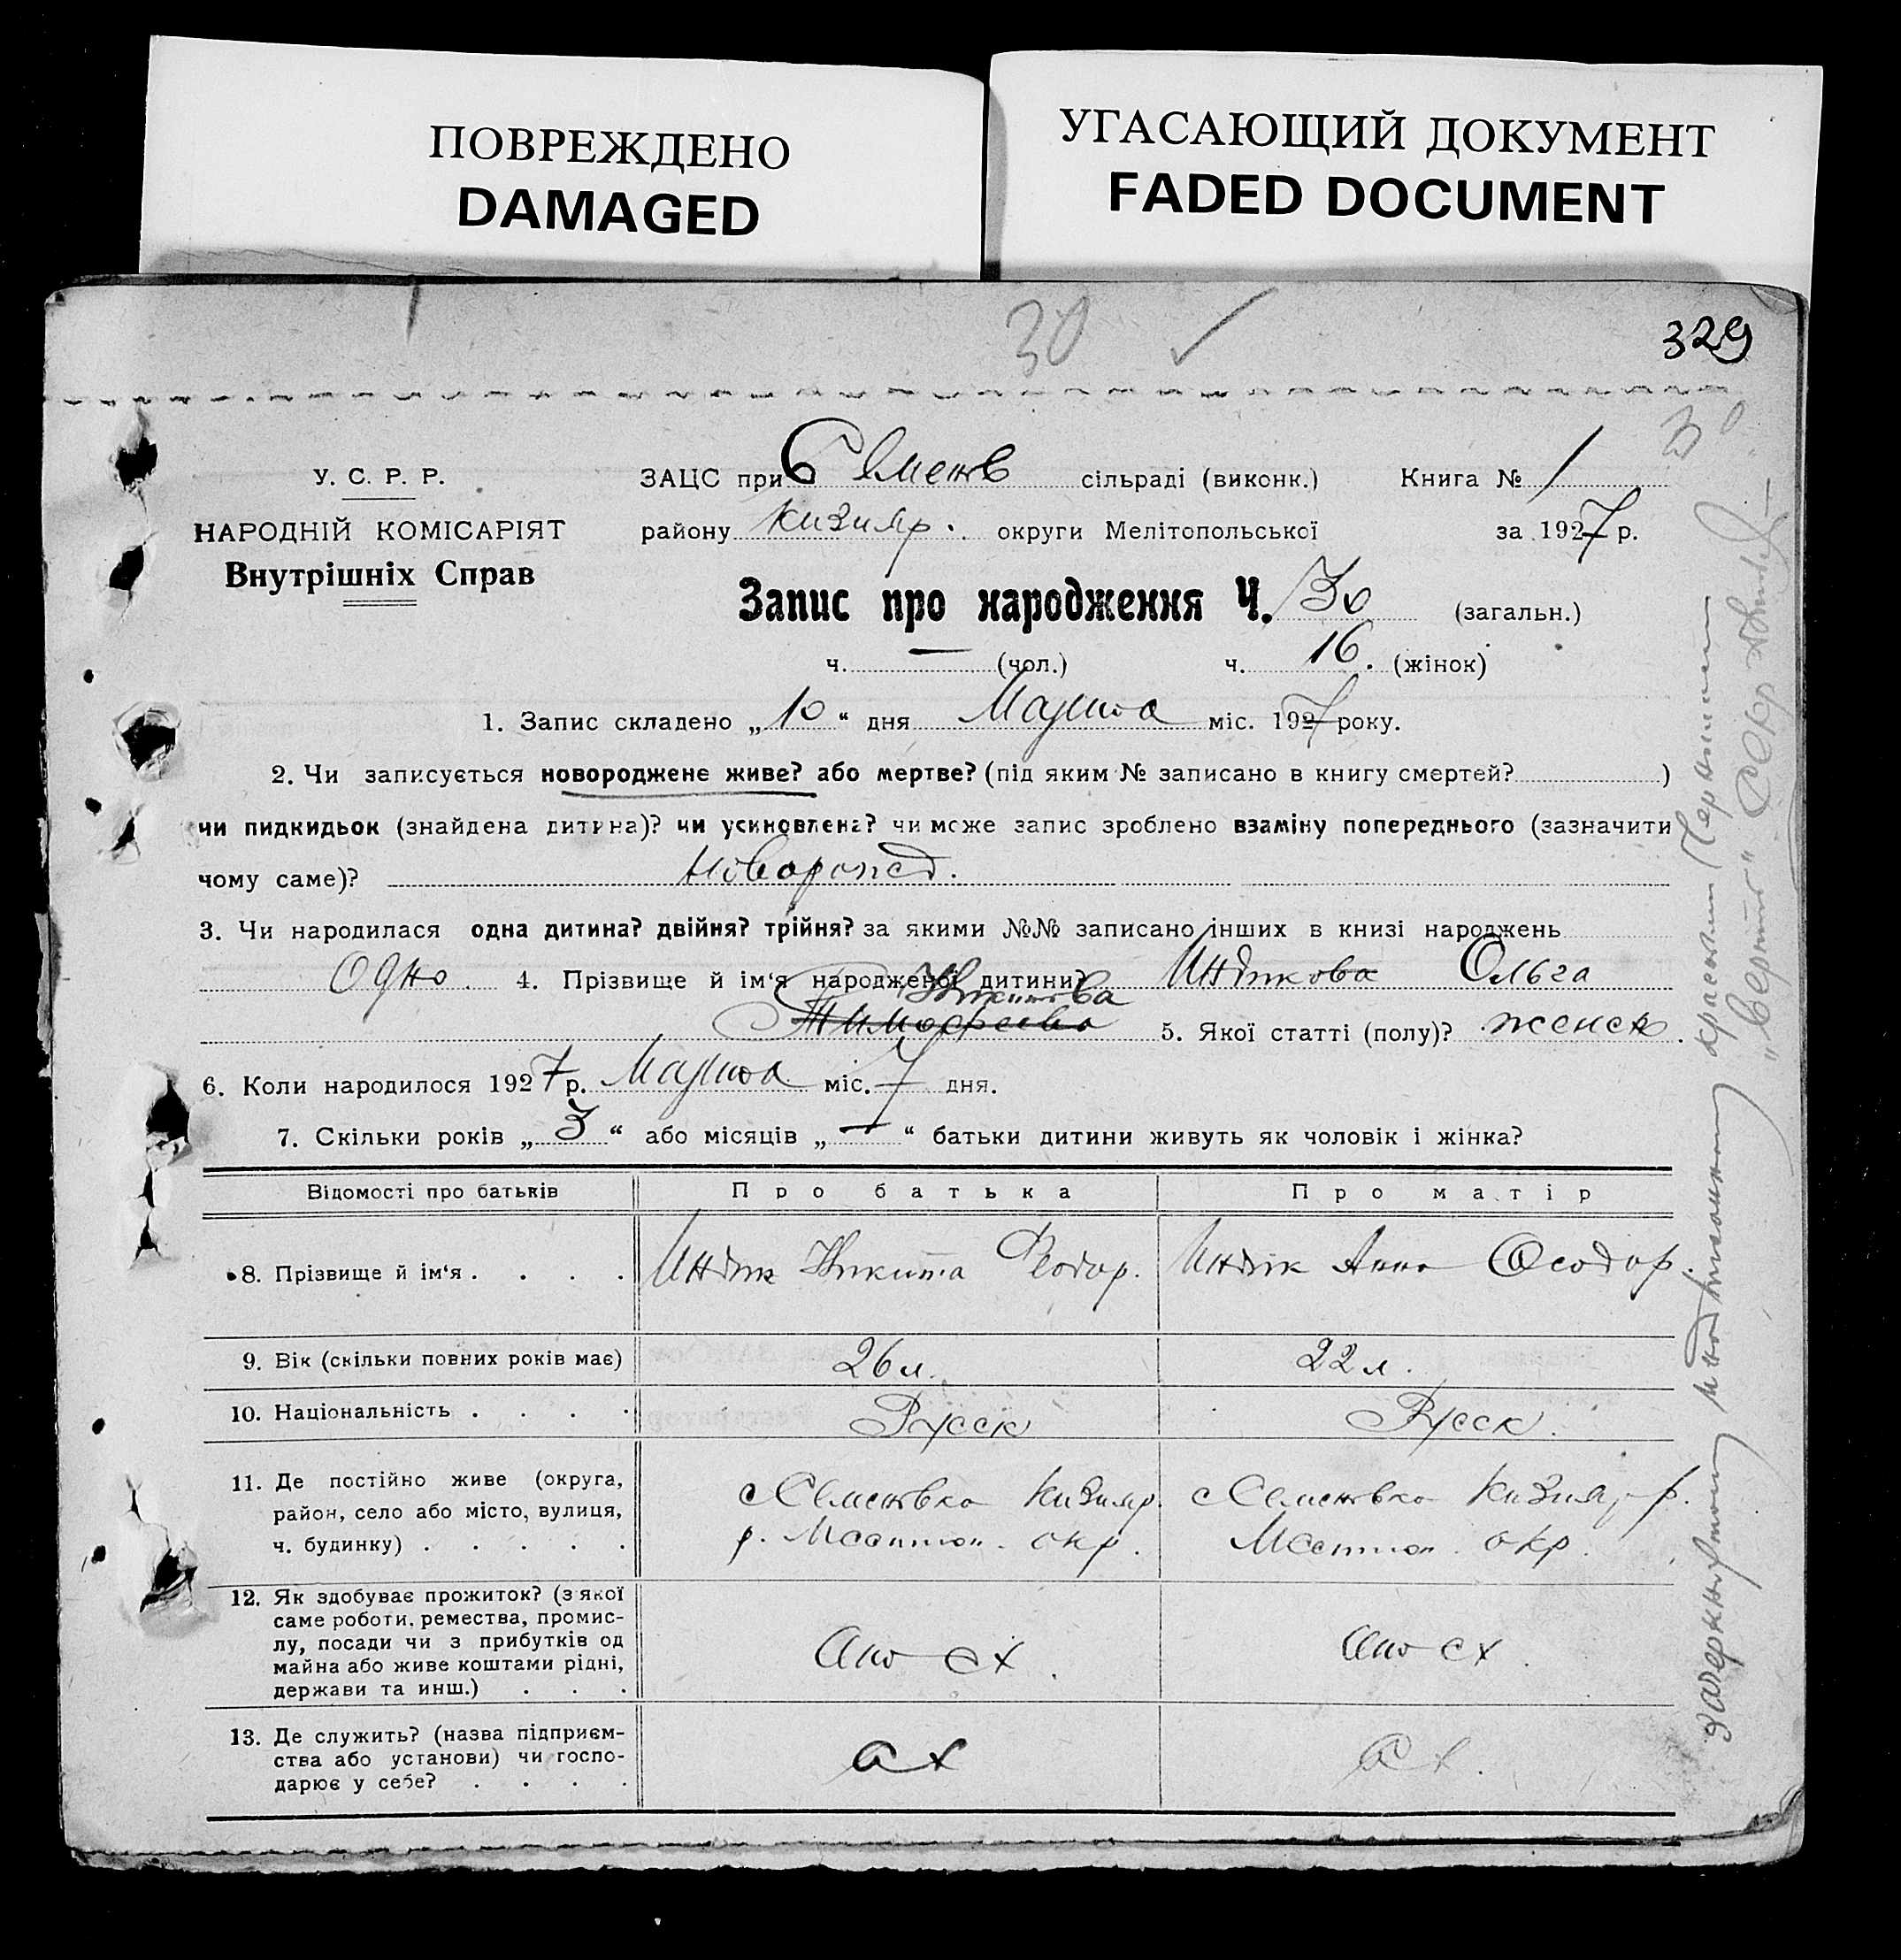 ПОВРЕЖДЕНО
DAMAGED
УГАСАЮЩИЙ ДОКУМЕНТ
FADED DOCUMENT
30
329
30
У. С. Р. Р.
НАРОДНІЙ КОМІСАРІЯТ
Внутрішніх Справ
ЗАЦС при Семенів сільраді (виконк.) Книга № 1
району Кизияр. округи Мелітопольської за 1927 р.
Запис про народження Ч. 30 (загальн.)
ч. — (чол.) ч. 16. (жінок)
1. Запис складено „10“ дня Марта міс. 1927 року.
2. Чи записується новороджене живе? або мертве? (під яким № записано в книгу смертей? )
чи пидкидьок (знайдена дитина)? чи усиновлена? чи може запис зроблено взаміну попереднього (зазначити
чому саме)? Новорожд.
3. Чи народилася одна дитина? двійня? трійня? за якими №№ записано інших в книзі народжень
Одно. 4. Прізвище й ім‘я народженої дитини? Индикова Ольга
Никитова
Тимофеева 5. Якої статті (полу)? женск.
6. Коли народилося 1927 р. Марта міс. 7 дня.
7. Скільки років „3“ або місяців „—“ батьки дитини живуть як чоловік і жінка?
Відомості про батьків Про батька Про матір
8. Прізвище й ім‘я . . . . Индик Никита Феодор. Индик Анна Феодор.
9. Вік (скільки повних років має) 26 л. 22 л.
10. Національність . . . . Русск Русск.
11. Де постійно живе (округа,
район, село або місто, вулиця,
ч. будинку) . . . . .
с Семеновка Кизияр.
р. Мелитоп. окр.
с Семеновка Кизияр р.
Мелитоп. окр.
12. Як здобуває прожиток? (з якої
саме роботи, ремества, промис-
лу, посади чи з прибутків од
майна або живе коштами рідні,
держави та инш.) . . .
сх.
сх.
13. Де служить? (назва підприєм-
ства або установи) чи госпо-
дарює у себе? . . . .
зачеркнутому и надписанному красными чернилами
„верить“